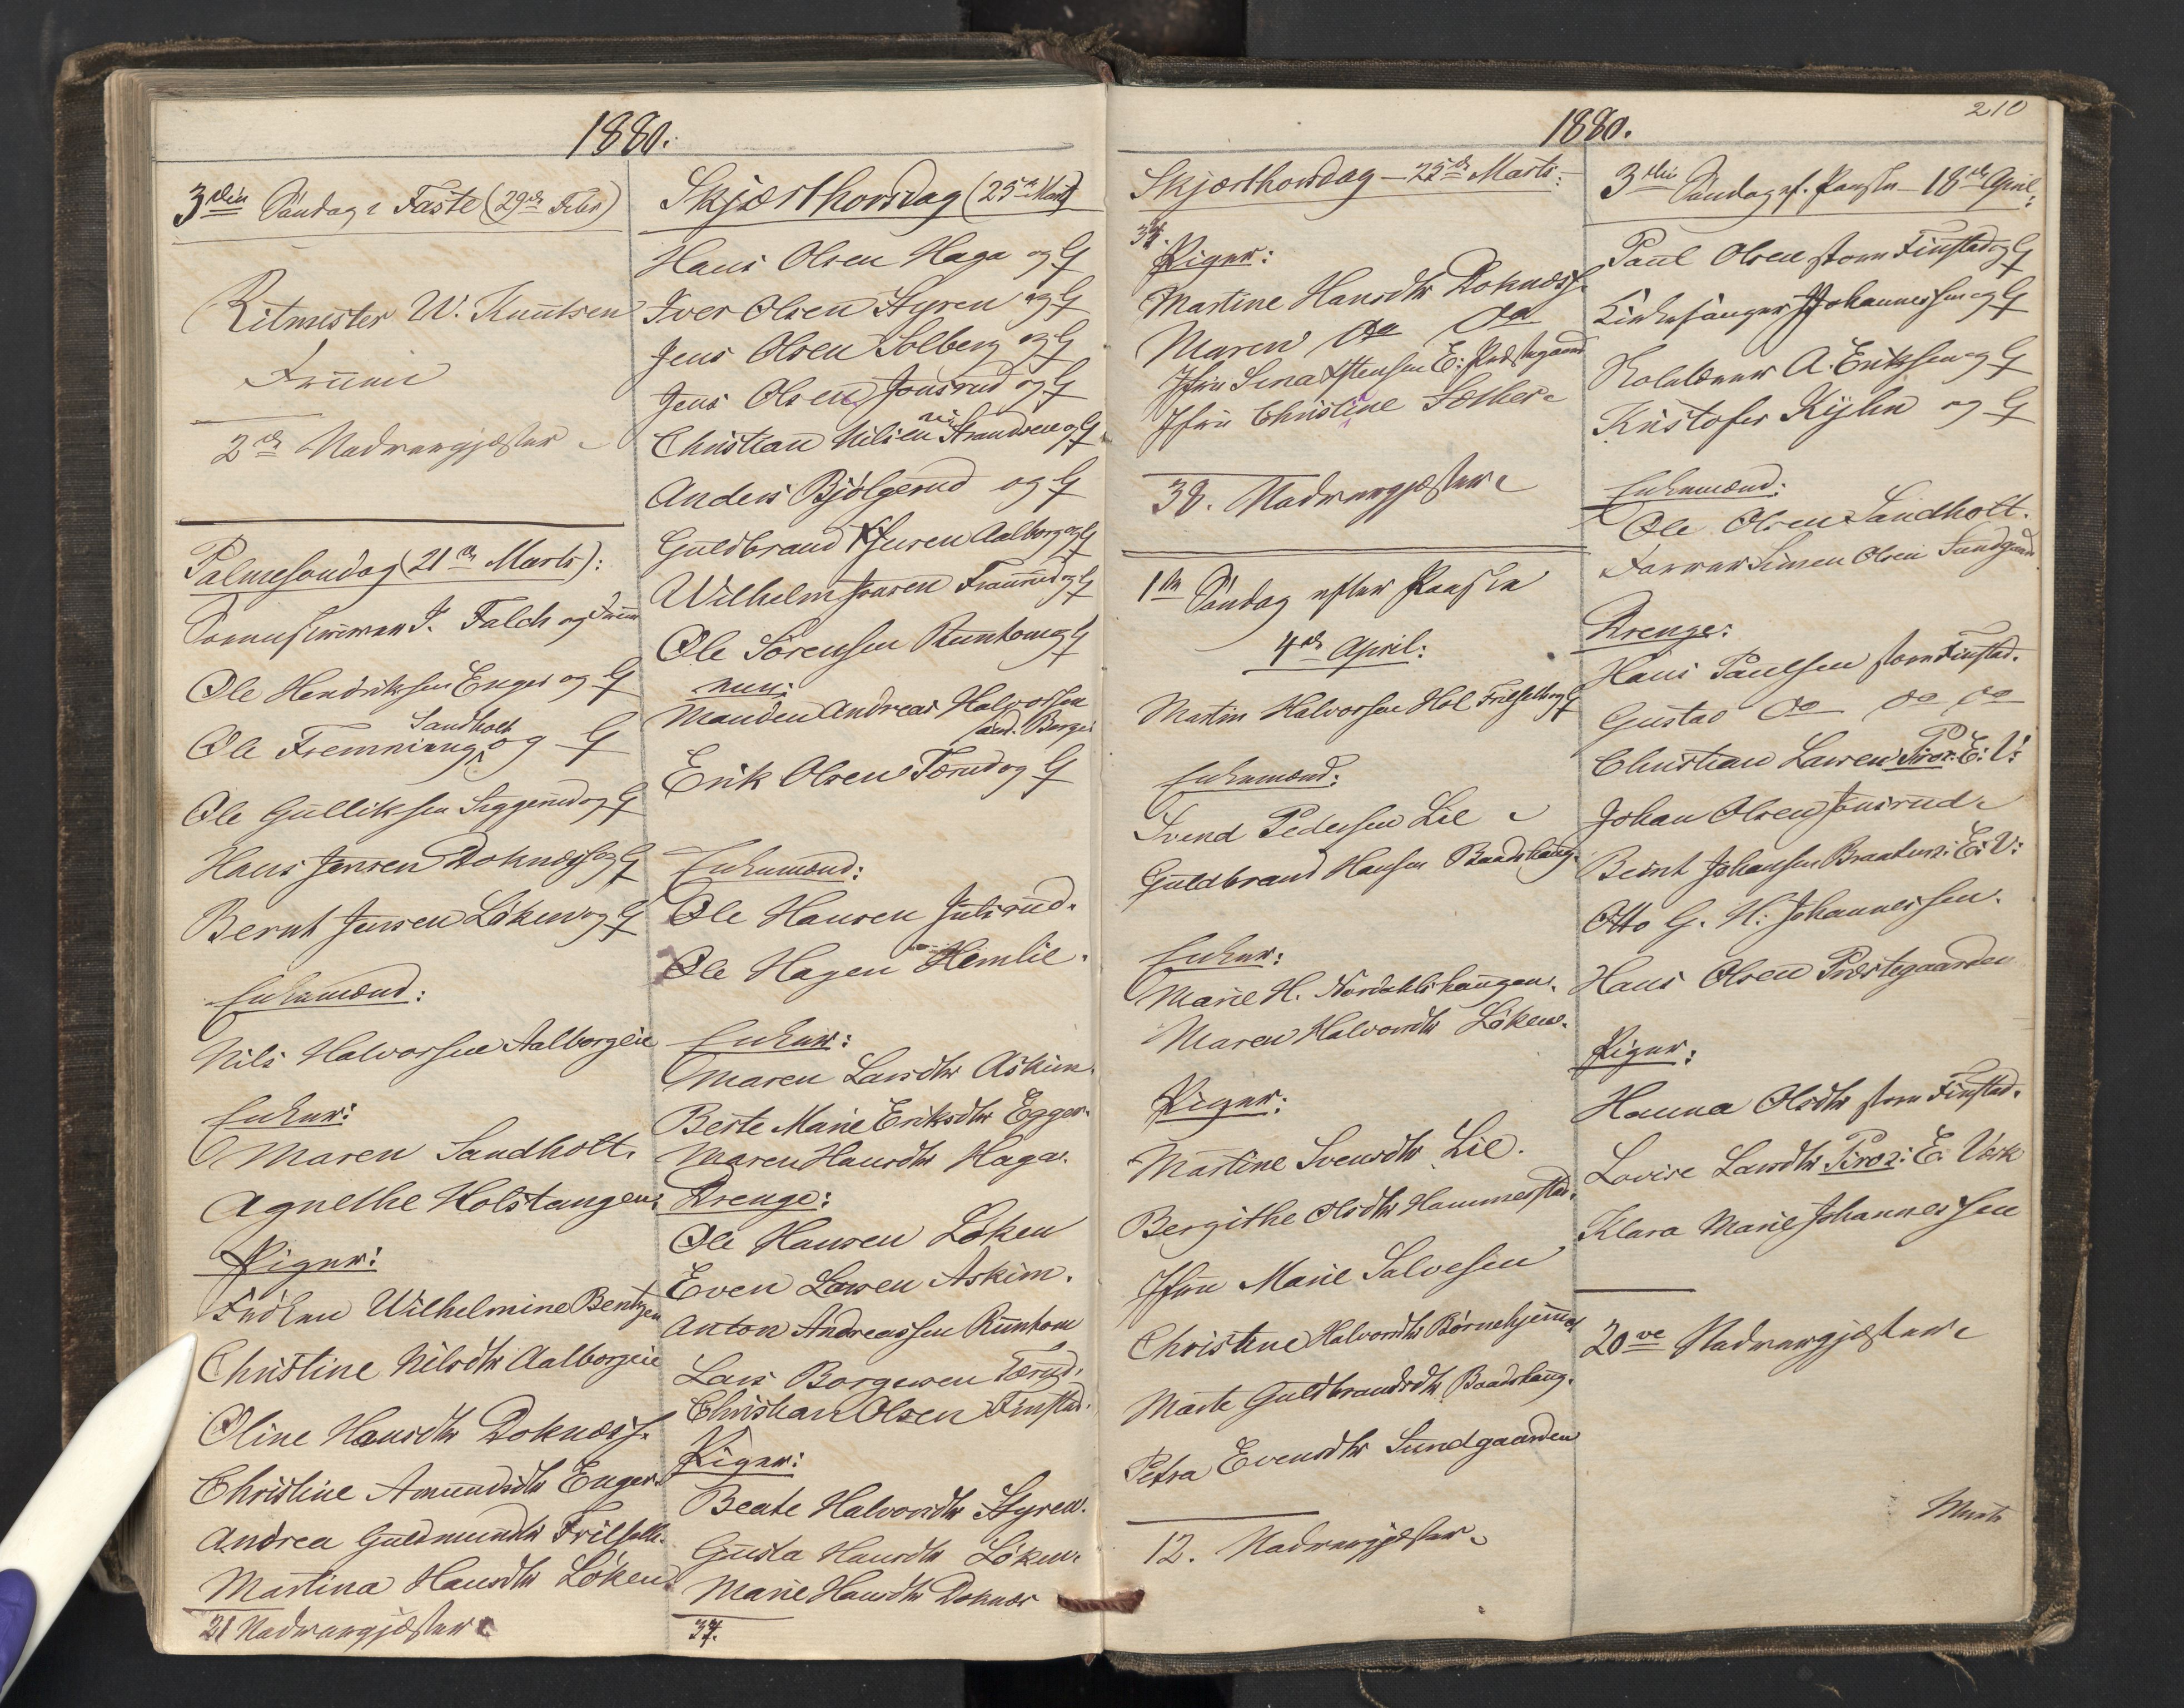 1880.
3die Søndag i Faste (29de Febr)
Ritmester W. Knutsen
Frue
2de Nadvergjæster
Palmesøndag (21de Marts):
J. Falch og Frue
Ole Hendriksen Enger og G
Sandholt
Ole Fremming og G
Ole Gulliksen Seggerud og G
Hans Jensen Doknæss og G
Bernt Jensen Løken og G
Enkemænd:
Nils Halvorsen Aalborgeie
Enker:
Maren Sandholt.
Agnethe Holstangen.
Piger:
Frøken Wilhelmine Bentzen
Christine Nilsdtr Aalborgeie
Oline Hansdtr Doknæss.
Christine Amundsdtr Enger.
Andrea Guldmundsdtr Frilseth.
Martina Hansdtr Løken
21 Nadvergjæster
Skjærthorsdag (25de Marts)
Hans Olsen Haga og G
Iver Olsen Styren og G
Jens Olsen Solberg og G
Jens Olsen Jonsrud og G
Christian Nilsen Strandvee og G
Anders Bjølgerud og G
Guldbrand Iversen Aalborg og G
Wilhelm Frannud og G
Ole Sørensen Runhom og G
Manden Andreas Halvorsen
Berger
Erik Olsen Tærud og G
Enkemænd:
Ole Hansen Julsrud.
Ole Hagen Hemlie.
Enker:
Maren Larsdtr Askim.
Berte Marie Eriksdtr Egger.
Maren Hansdtr Haga.
Drenge:
Ole Hansen Løken
Even Larsen Askim.
Anton Andreassen Runhom
Lars Borgersen Tærud.
Christian Olsen Finstad.
Piger:
Beate Halvorsdtr Styren.
Gusta Hansdtr Løken.
Marie Hansdtr Doknæs
34.
210
1880.
Skjærthorsdag – 25de Marts:
34.
Piger:
Martine Hansdtr Doknæss.
Maren do do
Jfru Lina Østensen E. Præstegaard
Jfru Christine Sæther
38. Nadvergjæster
1ste Søndag efter Paaske
4de April:
Martin Halvorsen Hol Frilseth og G
Enkemænd:
Svend Pedersen Lie
Guldbrand Hansen Baadshaug.
Enker:
Marie H. Nordahlshaugen.
Maren Halvorsdtr Løken.
Piger:
Martine Svensdtr Lie.
Bergithe Olsdtr Hammerstad.
Jfru Marie Salvesen
Christine Halvorsdtr Børnehjemmet
Marte Guldbrandsdtr Baadshaug.
Petra Evensdtr Sundgaarden
12. Nadvergjæster
3die Søndag ef. Paaske – 18de April:
Paul Olsen store Finstad og G
Kirkesanger Johannessen og G
A. Eriksen og G
Kristofer Kijlin og G
Enkemænd:
Ole Olsen Sandholt.
Simen Olsen Sundgaard
Drenge:
Hans Paulsen store Finstad.
Gustav do do do
Christian Larsen Piroz: E: V:
Johan Olsen Jonsrud
Bernt Johansen Braaten: E: V:
Otto G. H. Johannessen.
Hans Olsen Præstegaarden
Piger:
Hanna Olsdtr store Finstad.
Lovise Larsdtr Piroz: E. Værk
Klara Marie Johannessen
20ve Nadvergjæster